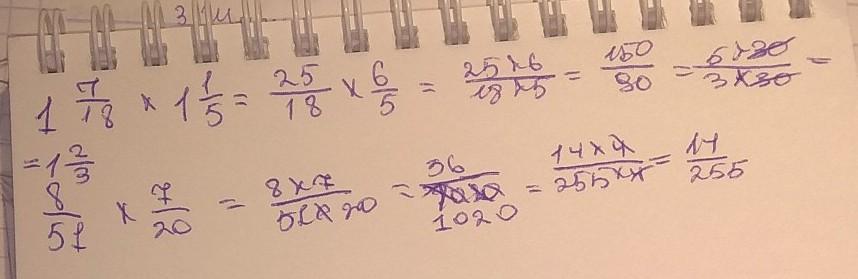 1 7/18 × 1 1/5 = 25/18 × 6/5 = 25×6/18×5 = 150/90 = 5×30/3×30 =
= 1 2/3
8/51 × 7/20 = 8×7/51×20 = 56/1020 = 14×4/255×4 = 14/255